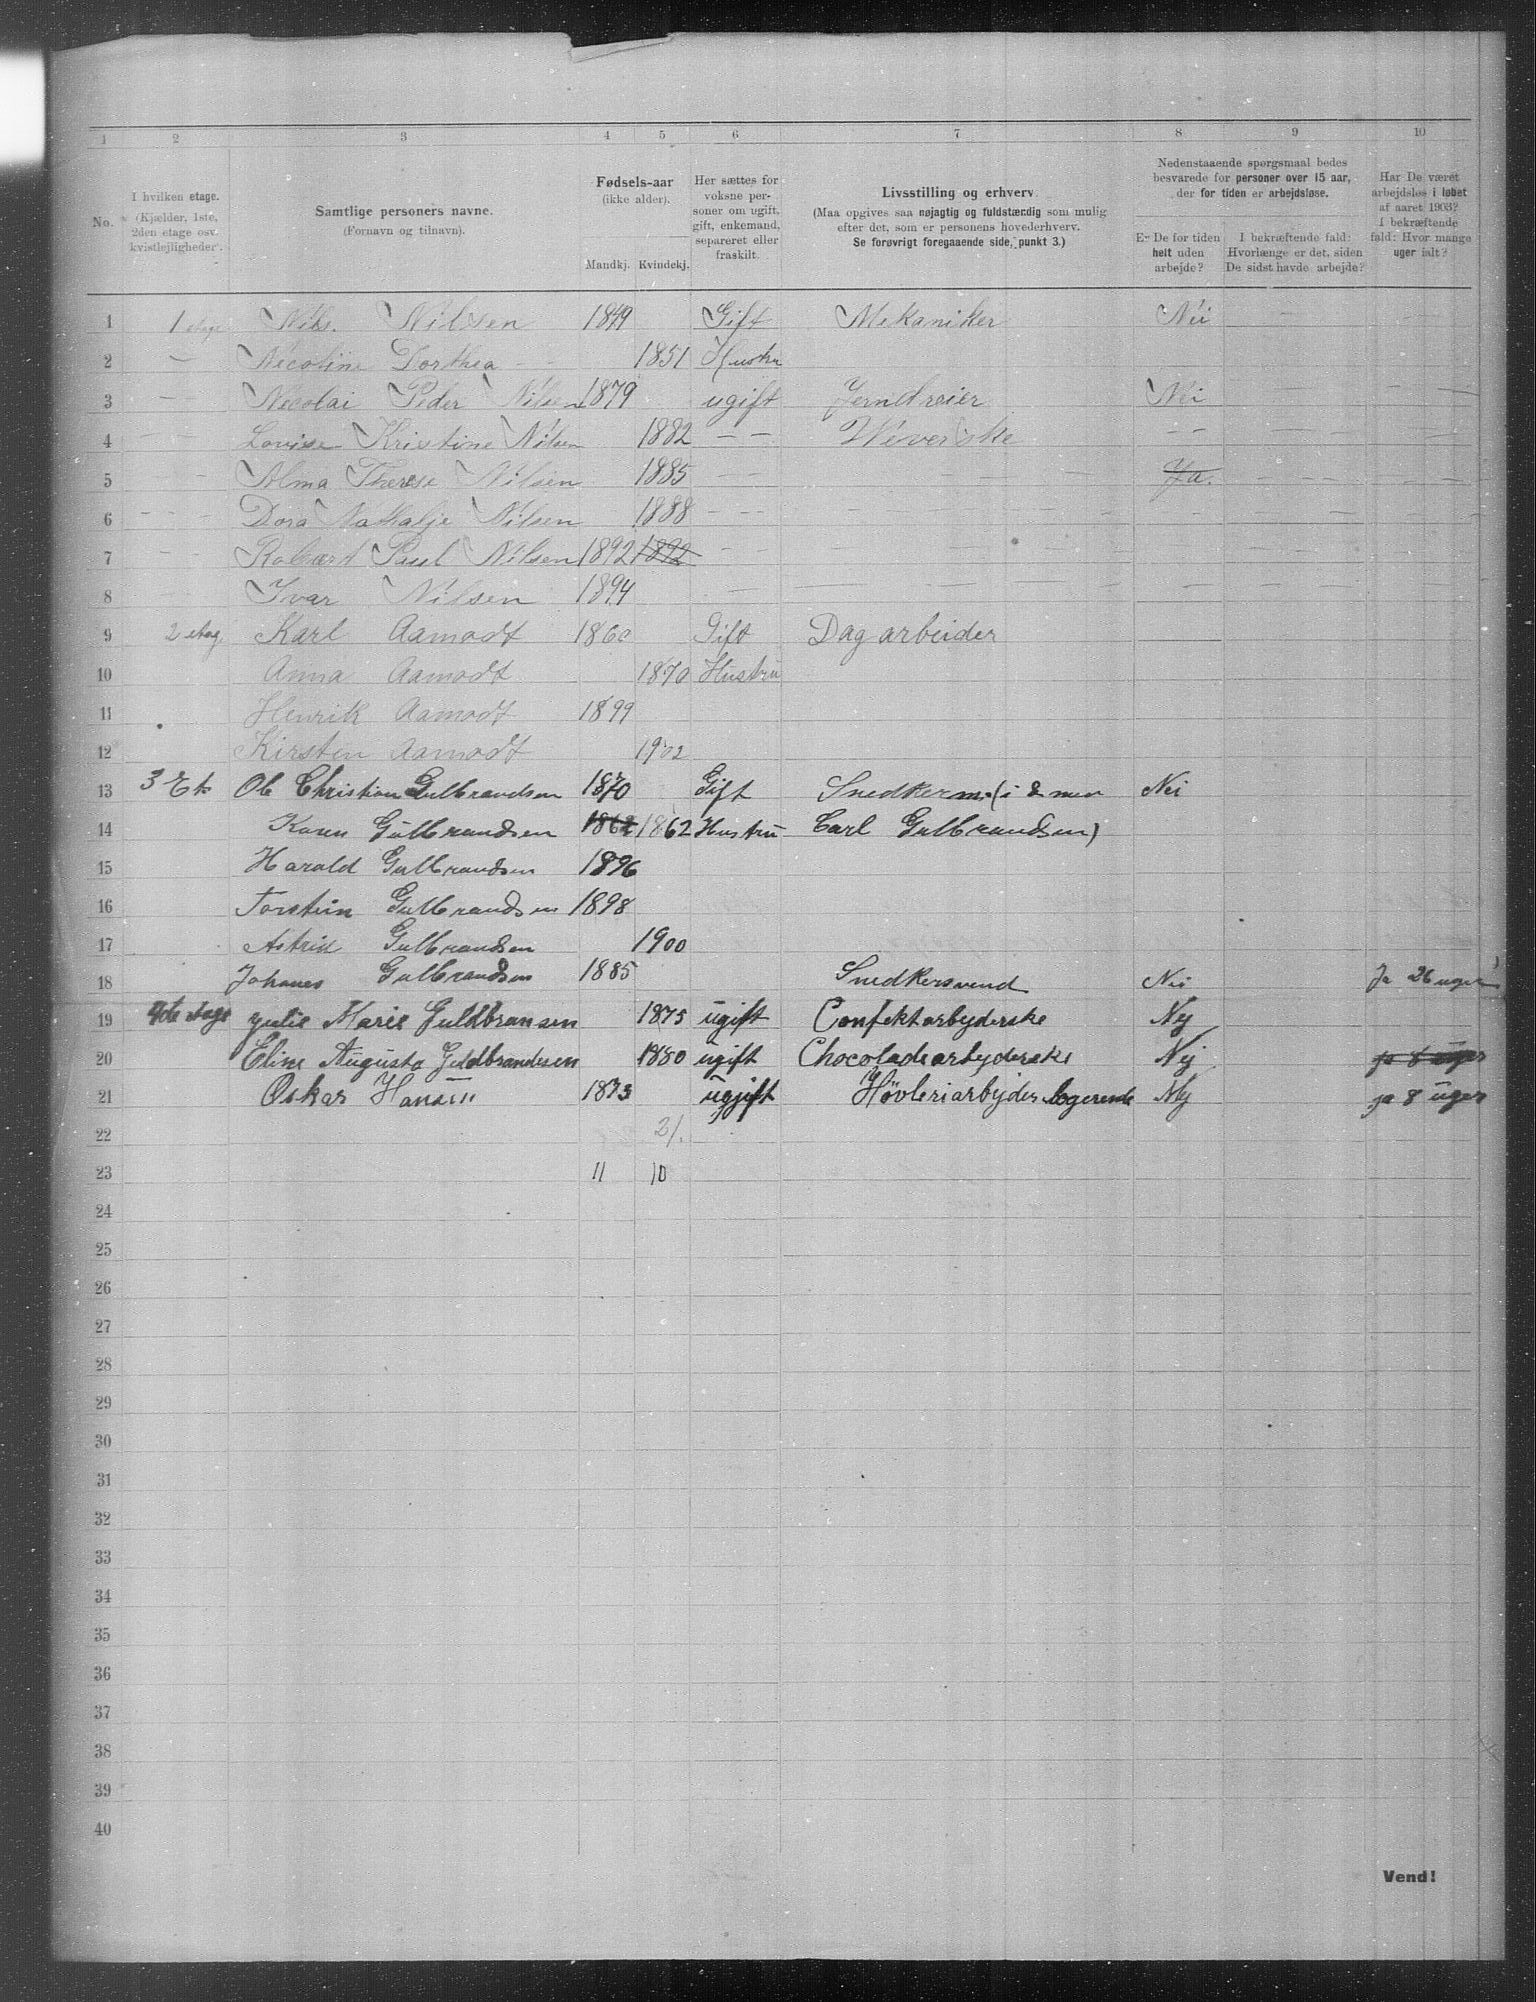 1 2 3 4 5 6 7 8 9 10
No.
I hvilken etage.
(Kjælder, 1ste, 2den etage osv. kvistlejligheder).
Samtlige personers navne.
(Fornavn og tilnavn).
Fødsels-aar
(ikke alder).
Mandkj. Kvindekj.
Her sættes for voksne personer om ugift, gift, enkemand, separeret eller fraskilt.
Livsstilling og erhverv.
(Maa opgives saa nøjagtig og fuldstændig som mulig efter det, som er personens hovederhverv.
Se forøvrigt foregaaende side, punkt 3.)
Nedenstaaende spørgsmaal bedes besvarede for personer over 15 aar, der for tiden er arbejdsløse.
Er De for tiden helt uden arbejde?
I bekræftende fald: Hvorlænge er det, siden De sidst havde arbejde?
Har De været arbejdsløs i løbet af aaret 1903? I bekræftende fald: Hvor mange uger ialt?
1 1 etage Nils. Nilsen 1849 Gift Mekaniker Nei
2 — Nicoline Dorthea — 1851 Hustru
3 — Nicolai Peder Nilsen 1879 ugift Jerndreier Nei
4 — Lovise Kristine Nilsen 1882 — — Weverske — —
5 — Alma Therese Nilsen 1885 — — — Ja. — — —
6 — — Dora Nathalje Nilsen 1888 — —
7 — — Robært Paul Nilsen 1892 1892 — —
8 Ivar Nilsen 1894 —
9 2 etag Karl Aamodt 1860 Gift Dagarbeider
10 Anna Aamodt 1870 Hustru
11 Henrik Aamodt 1899
12 Kirsten Aamodt 1902
13 3 Et Ole Christian Gulbrandsen 1870 Gift Snedkerm. (i Firma Nei
14 Karen Gulbrandsen 1862 1862 Hustru Carl Gulbrandsen)
15 Harald Gulbrandsen 1896
16 Torstein Gulbrandsen 1898
17 Astrid Gulbrandsen 1900
18 Johanes Gulbrandsen 1885 Snedkersvend Nei Ja 26 uger
19 4de etage Julie Marie Guldbransen 1875 ugift Confektarbyderske Nej
20 Eline Augusta Guldbrandsen 1880 ugift Chocoladearbyderske Nej ja 8 uger
21 Oskar Hansen 1873 ugift Høvleriarbyder logerende Nej ja 8 uger
22 21.
23 11 10
24
25
26
27
28
29
30
31
32
33
34
35
36
37
38
39
40
Vend!